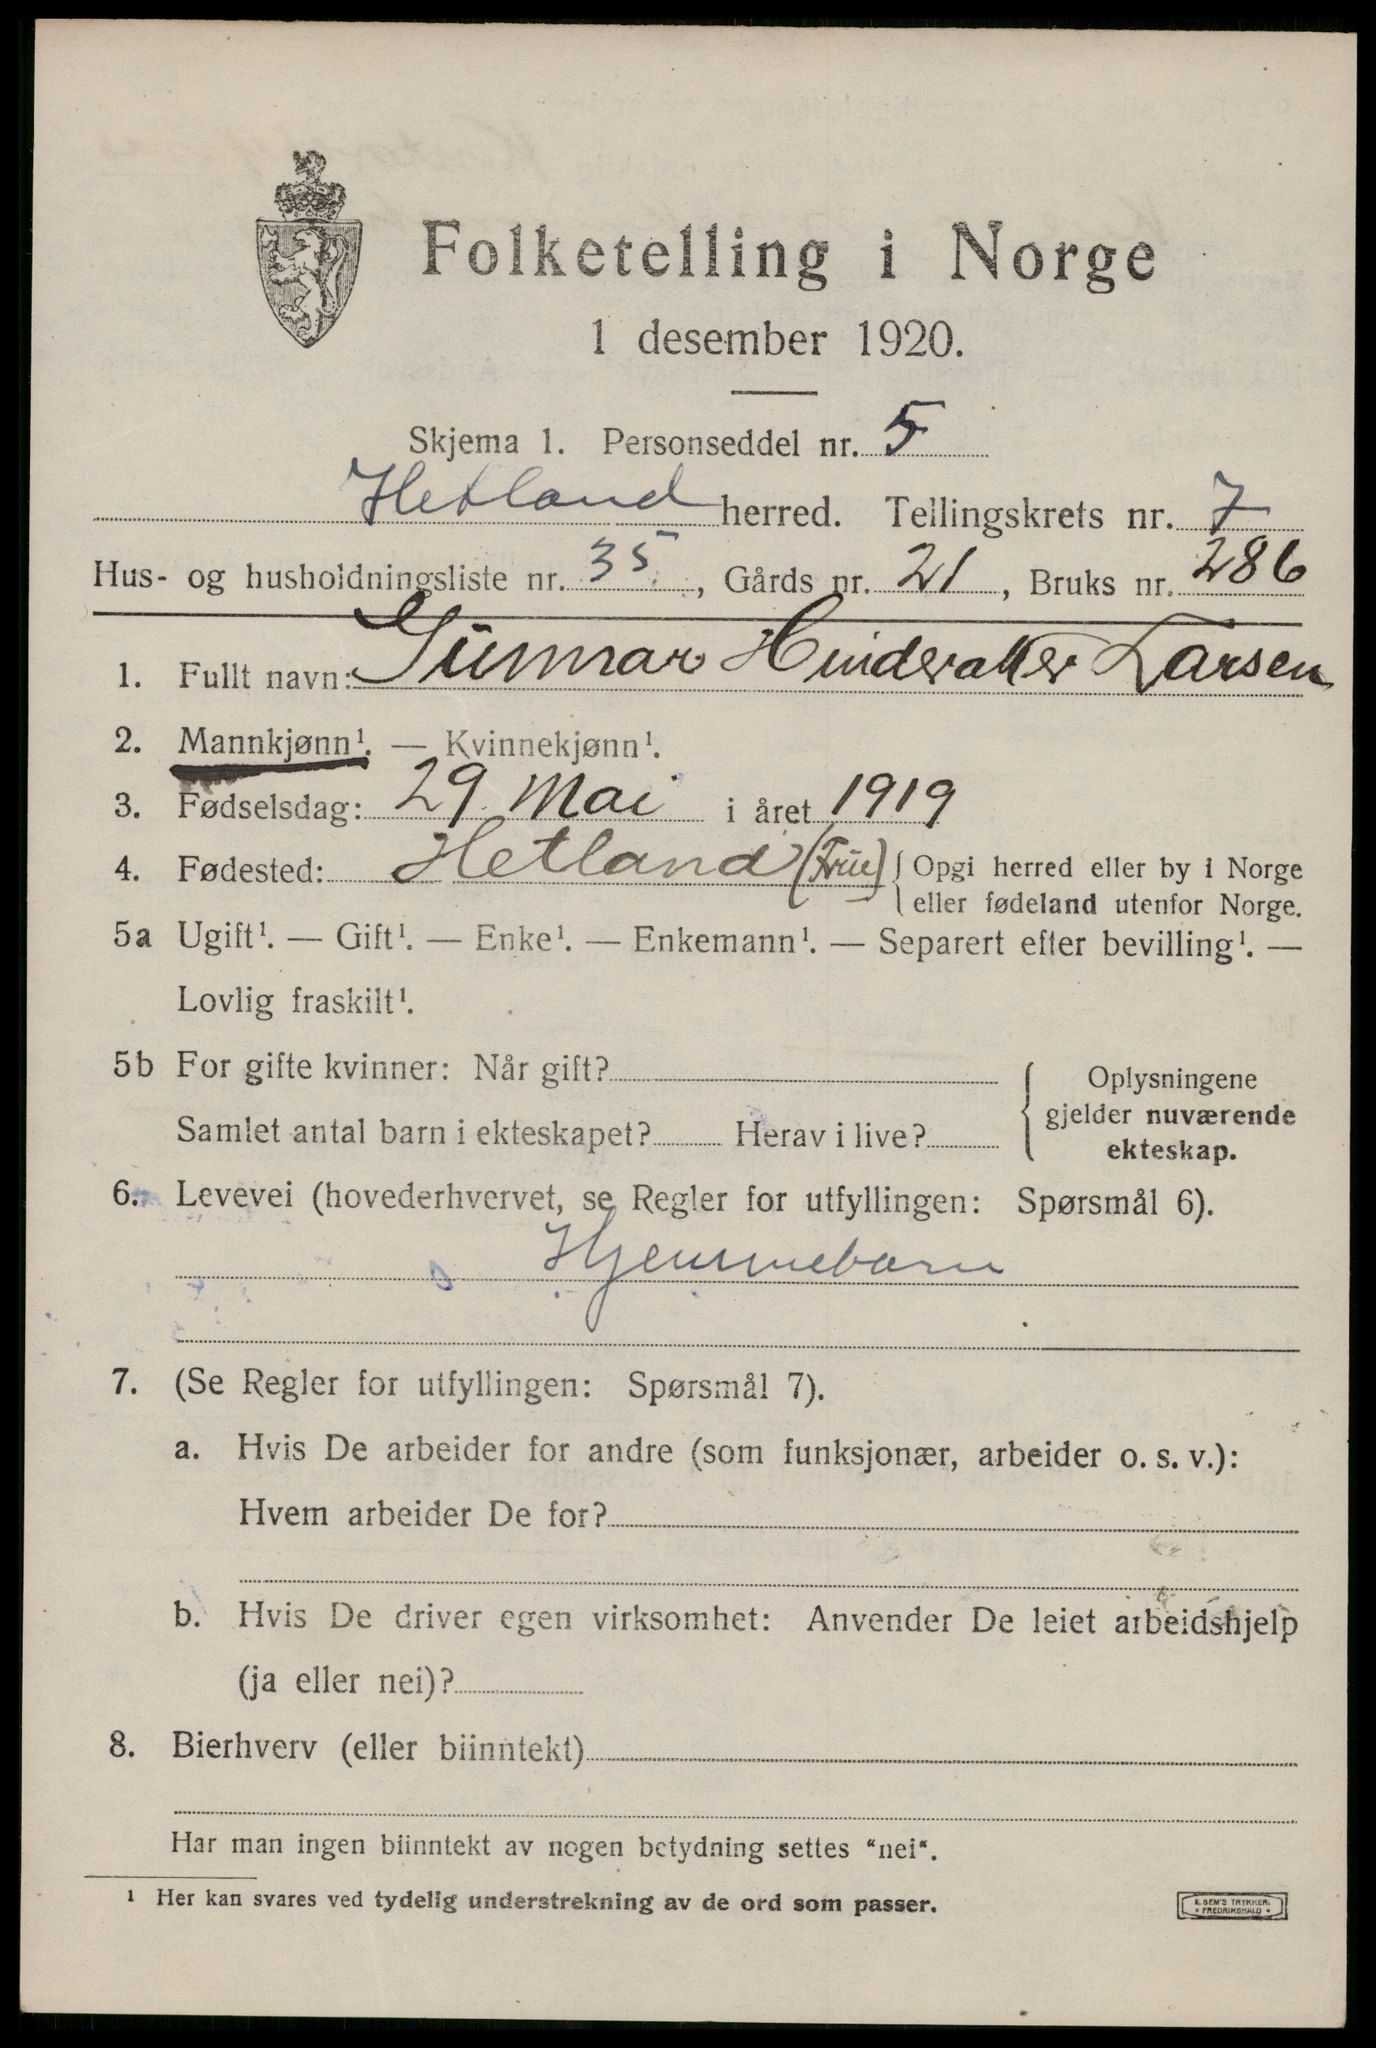 Folketelling i Norge
1 desember 1920.
Skjema 1. Personseddel nr. 5
Hetland herred. Tellingskrets nr. 7
Hus- og husholdningsliste nr. 35, Gårds nr. 21, Bruks nr. 286
1. Fullt navn: Gunnar Hinderaker Larsen
2. Mannkjønn¹. — Kvinnekjønn¹.
3. Fødselsdag: 29. Mai i året 1919
4. Fødested: Hetland { Opgi herred eller by i Norge
eller fødeland utenfor Norge.
5a Ugift¹. — Gift¹. — Enke¹. — Enkemann¹. — Separert efter bevilling¹. —
Lovlig fraskilt¹.
5b For gifte kvinner: Når gift?
Samlet antal barn i ekteskapet? Herav i live?
{ Oplysningene
gjelder nuværende
ekteskap.
6. Levevei (hovederhvervet, se Regler for utfyllingen: Spørsmål 6).
Hjemmebarn
7. (Se Regler for utfyllingen: Spørsmål 7).
a. Hvis De arbeider for andre (som funksjonær, arbeider o. s. v.):
Hvem arbeider De for?
b. Hvis De driver egen virksomhet: Anvender De leiet arbeidshjelp
(ja eller nei)?
8. Bierhverv (eller biinntekt)
Har man ingen biinntekt av nogen betydning settes "nei".
¹ Her kan svares ved tydelig understrekning av de ord som passer.
E. SEM'S TRYKKERI
FREDRIKSHALD